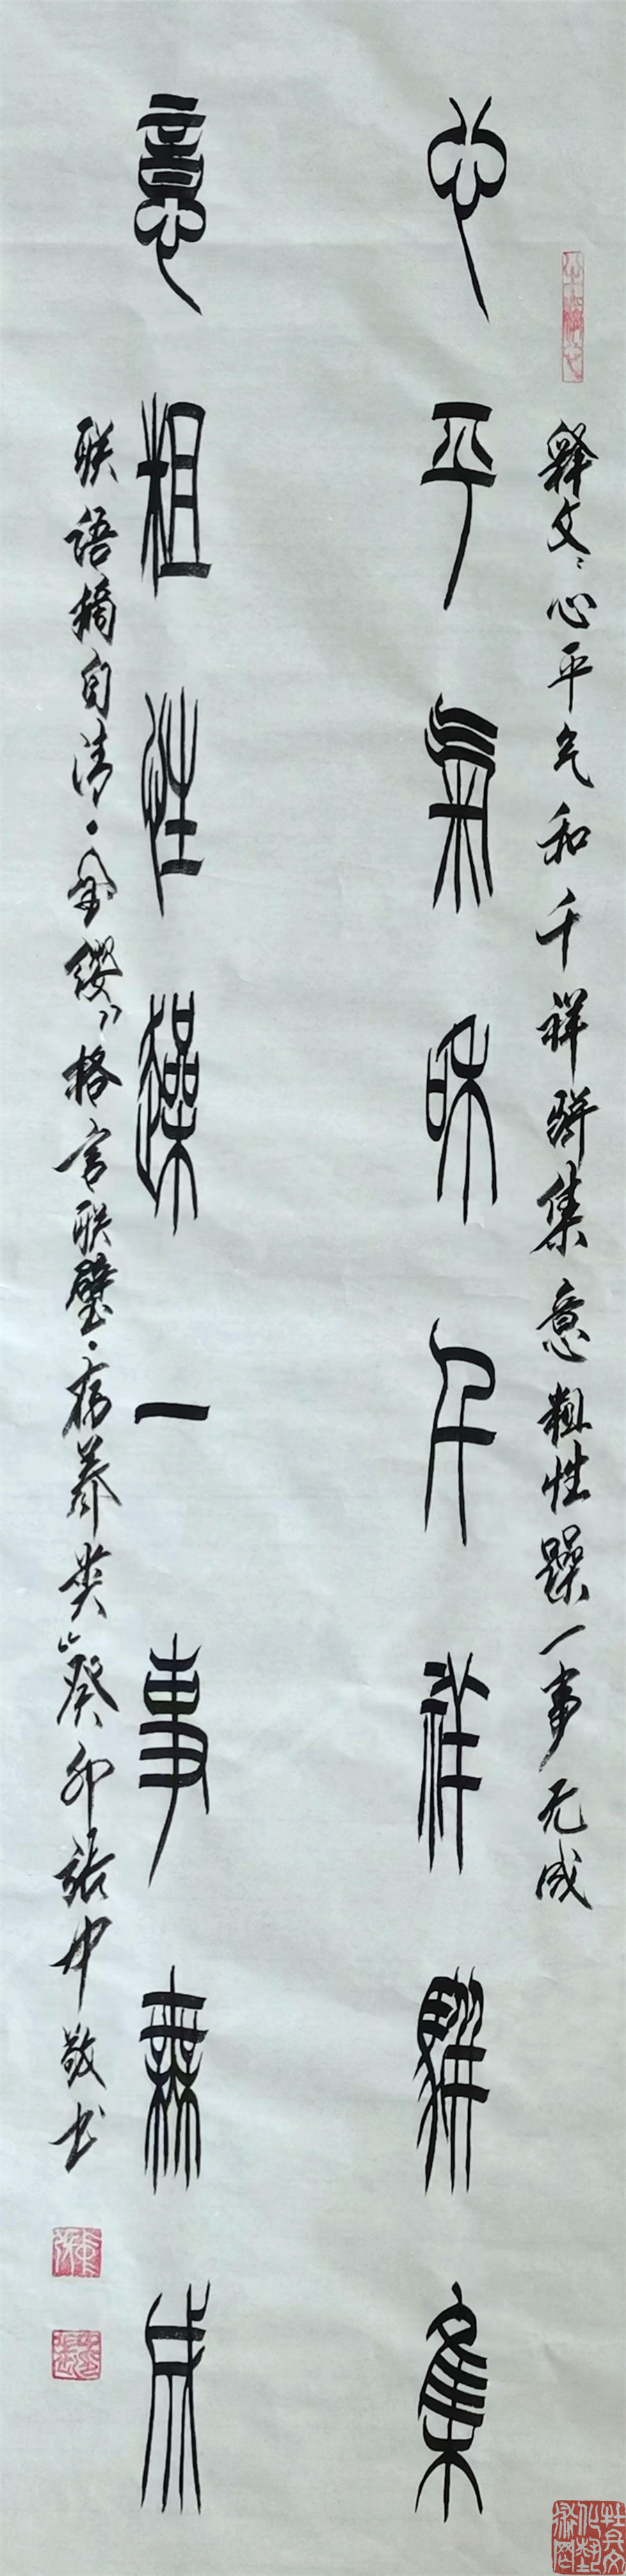 释文：心平气和千祥骈集意粗性躁一事无成
心平氣和千祥駢集
意粗性躁一事無成
联语摘自清·金缨《格言联璧·存养类》癸卯张中敬书
牡丹文化艺术网